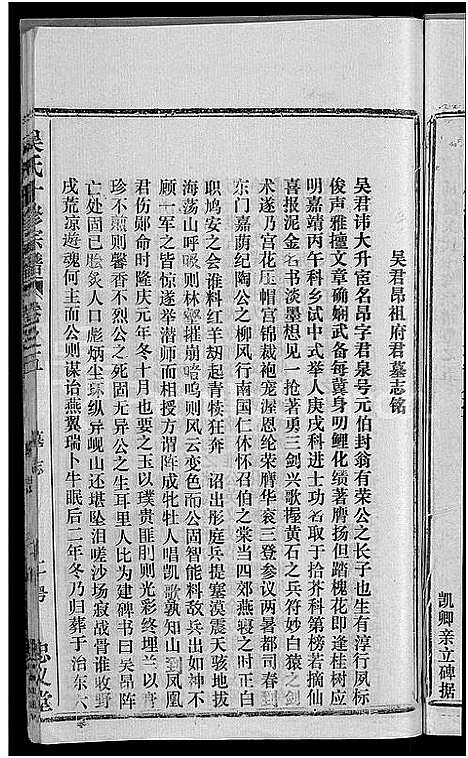 凯卿亲立碑据
吴君昂祖府君墓志铭
吴君讳大升宦名昂字君泉号元伯封翁有荣公之长子也生有淳行夙标
俊声雅擅文章确娴武备每冀身叨鲤化绩著膺扬但踏槐花即逢桂树应
明嘉靖丙午科乡试中式举人庚戌科进士功名取于拾芥科第榜若摘仙
喜报泥金名书淡墨想见一抢著勇三剑兴歌握黄石之兵符妙白猿之剑
术遂乃宫花压帽宫锦裁袍宠渥恩纶荣膺华衮三登参议两晋都司春到
东门嘉荫纪陶公之柳风行南国仁休怀召伯之棠当四郊燕寝之时正白
职鸠安之会谁料红羊胡起青犊狂奔 诏出彤庭兵提塞漠震天骇地拔
海荡山呼吸则林壑摧崩喑呜则风云变色而公固智能料敌兵出如神不
顾一军之皆惊遂举潜师而相授方谓阵成牝牡人唱凯歌孰知山到凤凰
君伤郧命时隆庆元年冬十月也要之玉以璞贵匪刖则光彩终埋兰以膏
珍不煎则馨香不烈公之死固无异公之生耳里人比为建碑书曰吴昂阵
亡处固已脍炙人口彪炳尘环纵异岘山还堪坠泪嗟沙场寂战骨谁收野
戍荒凉遊魂何主而公则谋诒燕翼瑞卜牛眠后二年冬乃归葬于治东六
吴氏十修宗谱
卷之五
忠义堂